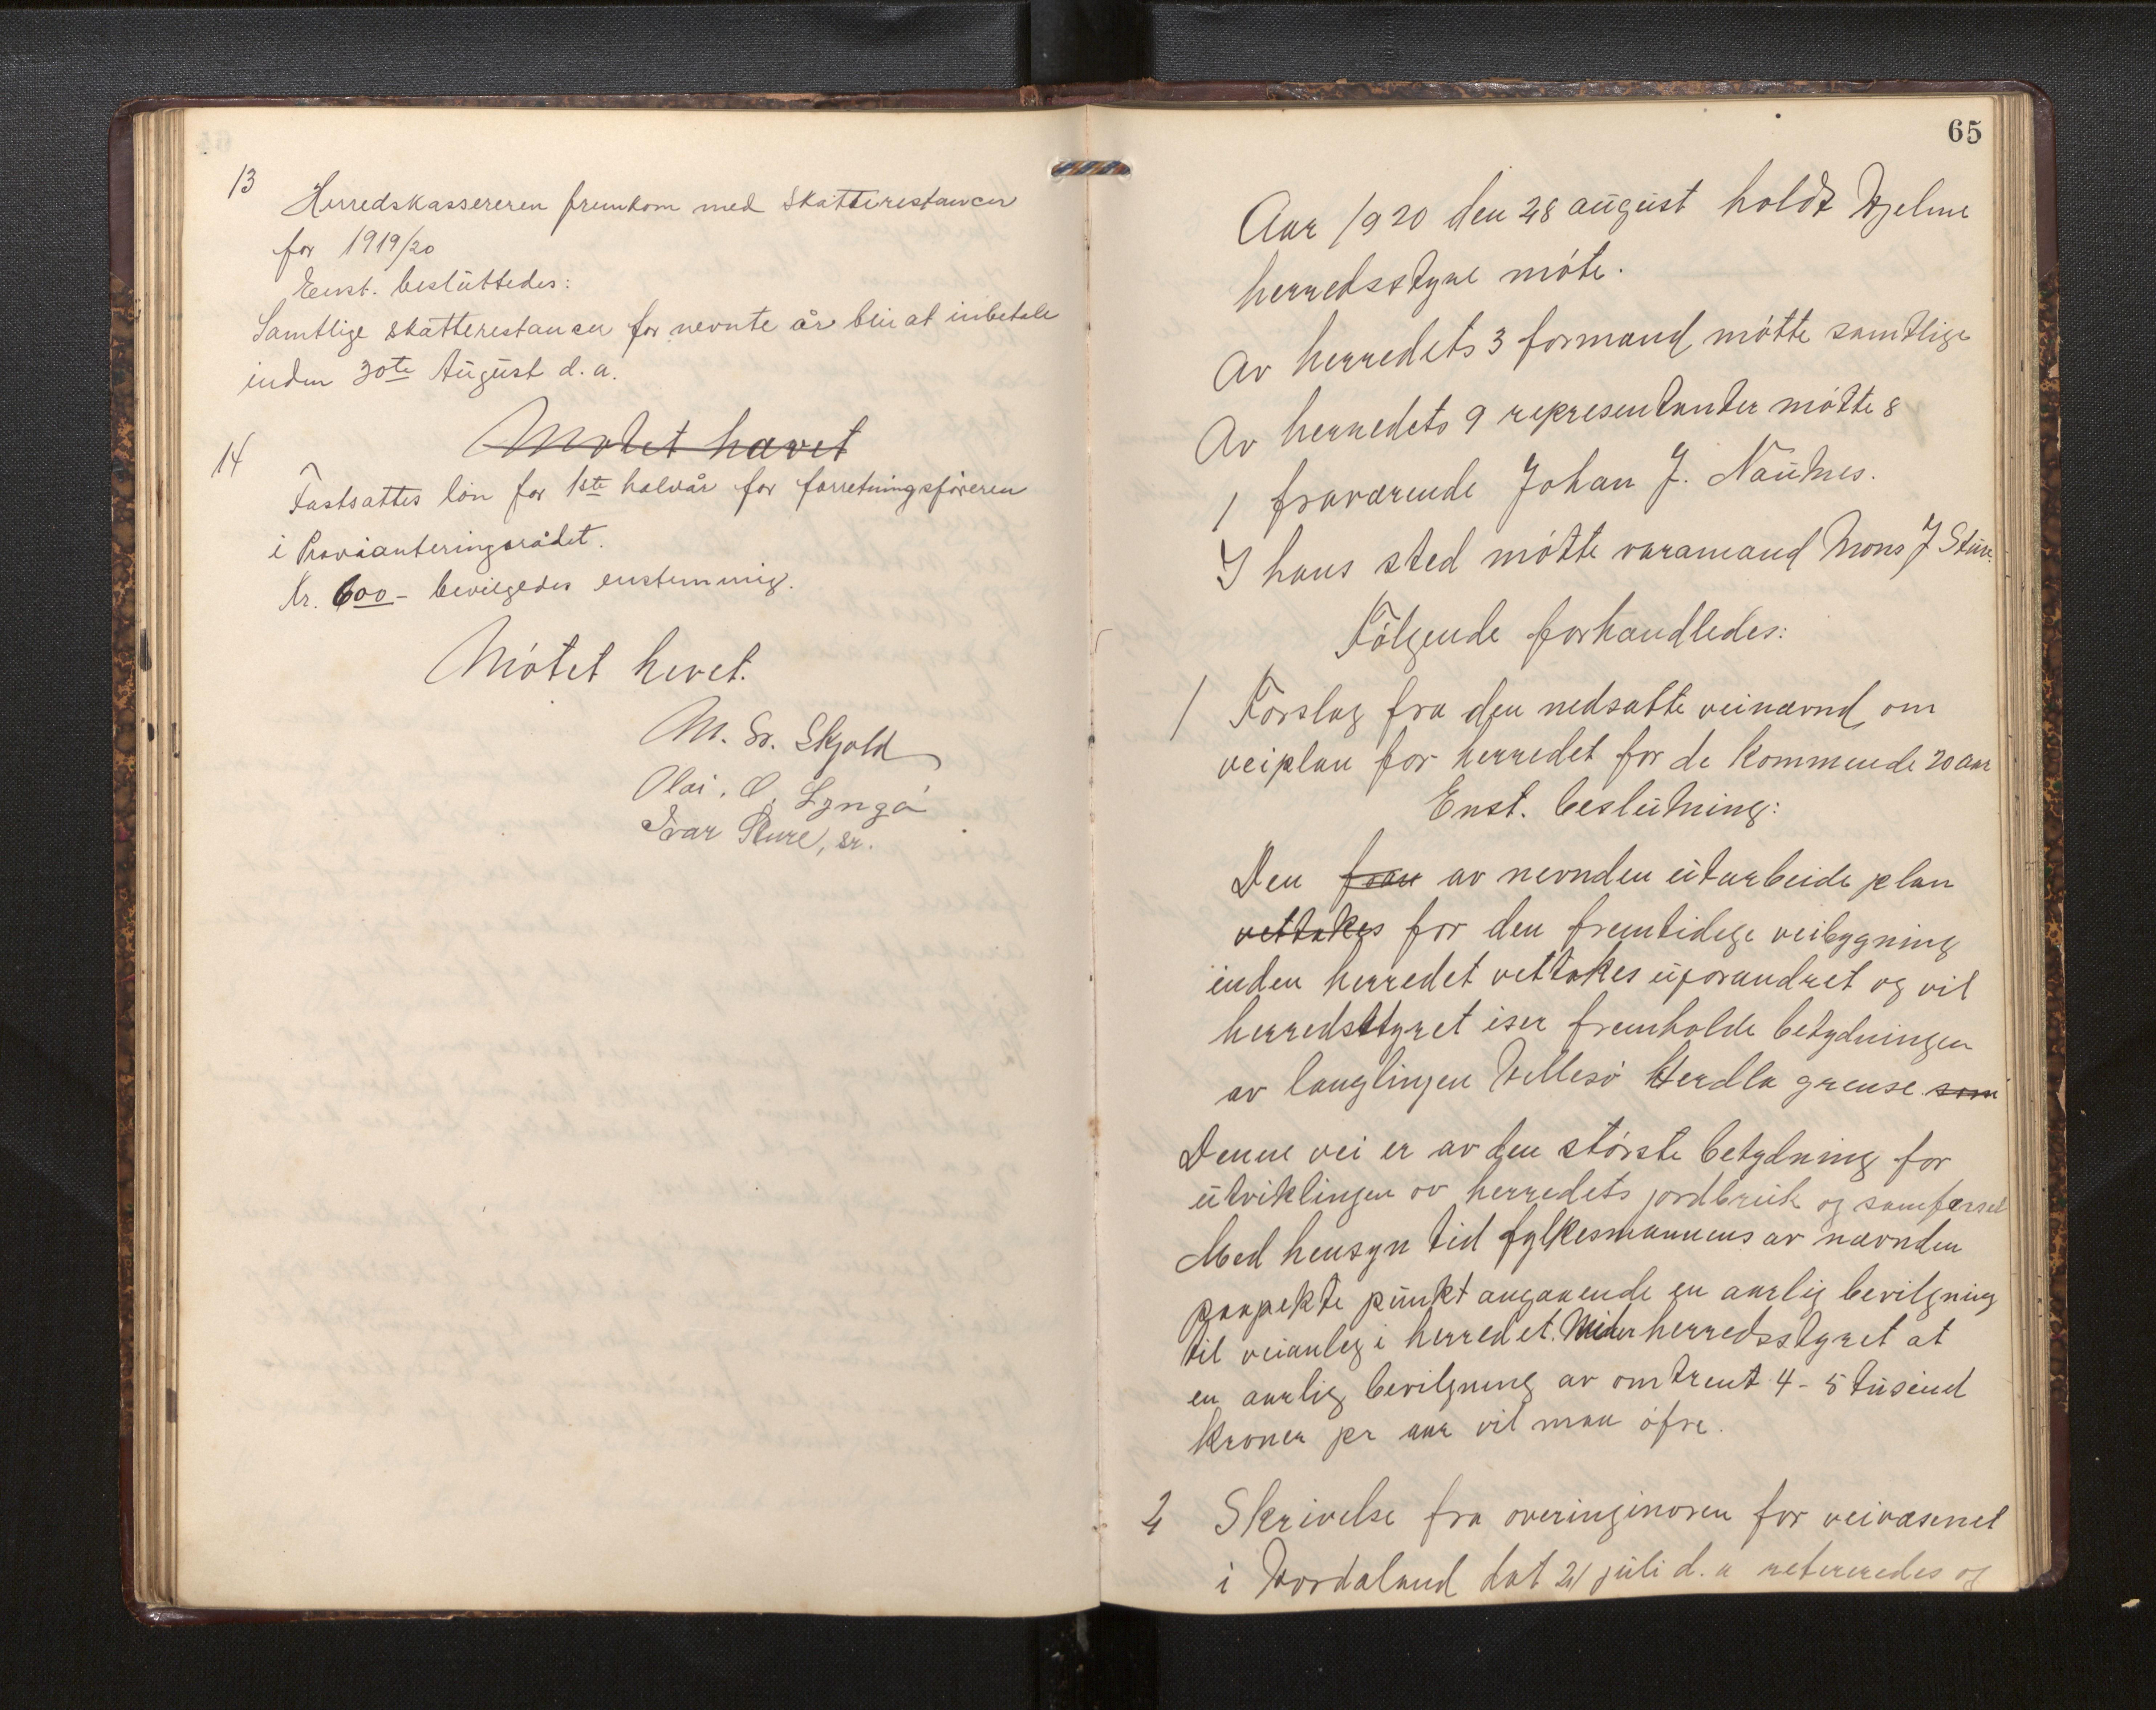 13
Herredskassereren fremkom med Skatterestancer
for 1919/20
Enst. besluttedes:
Samtlige skatterestancer for nevnte år blir at inbetale
inden 30te August d.a.
Møtet hævet
14
Fastsattes løn for 1ste halvår for forretningsføreren
i Provianteringsrådet.
Kr. 600- bevilgedes enstemmig.
Møtet hevet.
M. Sr. Skjold
Olai. O. Lyngø
Ivar Sture, sr.
65
Aar 1920 den 28 august holdt Hjelme
herredsstyre møte.
Av herredets 3 formand møtte samtlige
Av herredets 9 representanter møtte 8
1 fraværende Johan J. Nautnes.
I hans sted møtte varamand Mons J Sture.
Følgende forhandledes:
1 Forslag fra den nedsatte veinævnd om
veiplan for herredet for de kommende 20 aar
Enst. beslutning:
Den av nevnden utarbeide plan
vettakes for den fremtidige veibygning
inden herredet vettakes uforandret og vil
herredsstyret iser fremholde betydningen
av langlinjen Hellesø Herdla grense som
Denne vei er av den største betydning for
utviklingen av herredets jordbruk og samfærsel
Med hensyn tid fylkesmannens av nævnden
paapekte punkt angaaende en aarlig bevilgning
til veianleg i herredet. Mener herredsstyret at
en aarlig bevilgning av omtrent 4-5 tusind
kroner pr aar vil man ofre.
2 Skrivelse fra overinginøren for veivæsenet
i Hordaland dat 21 juli d.a refereredes og